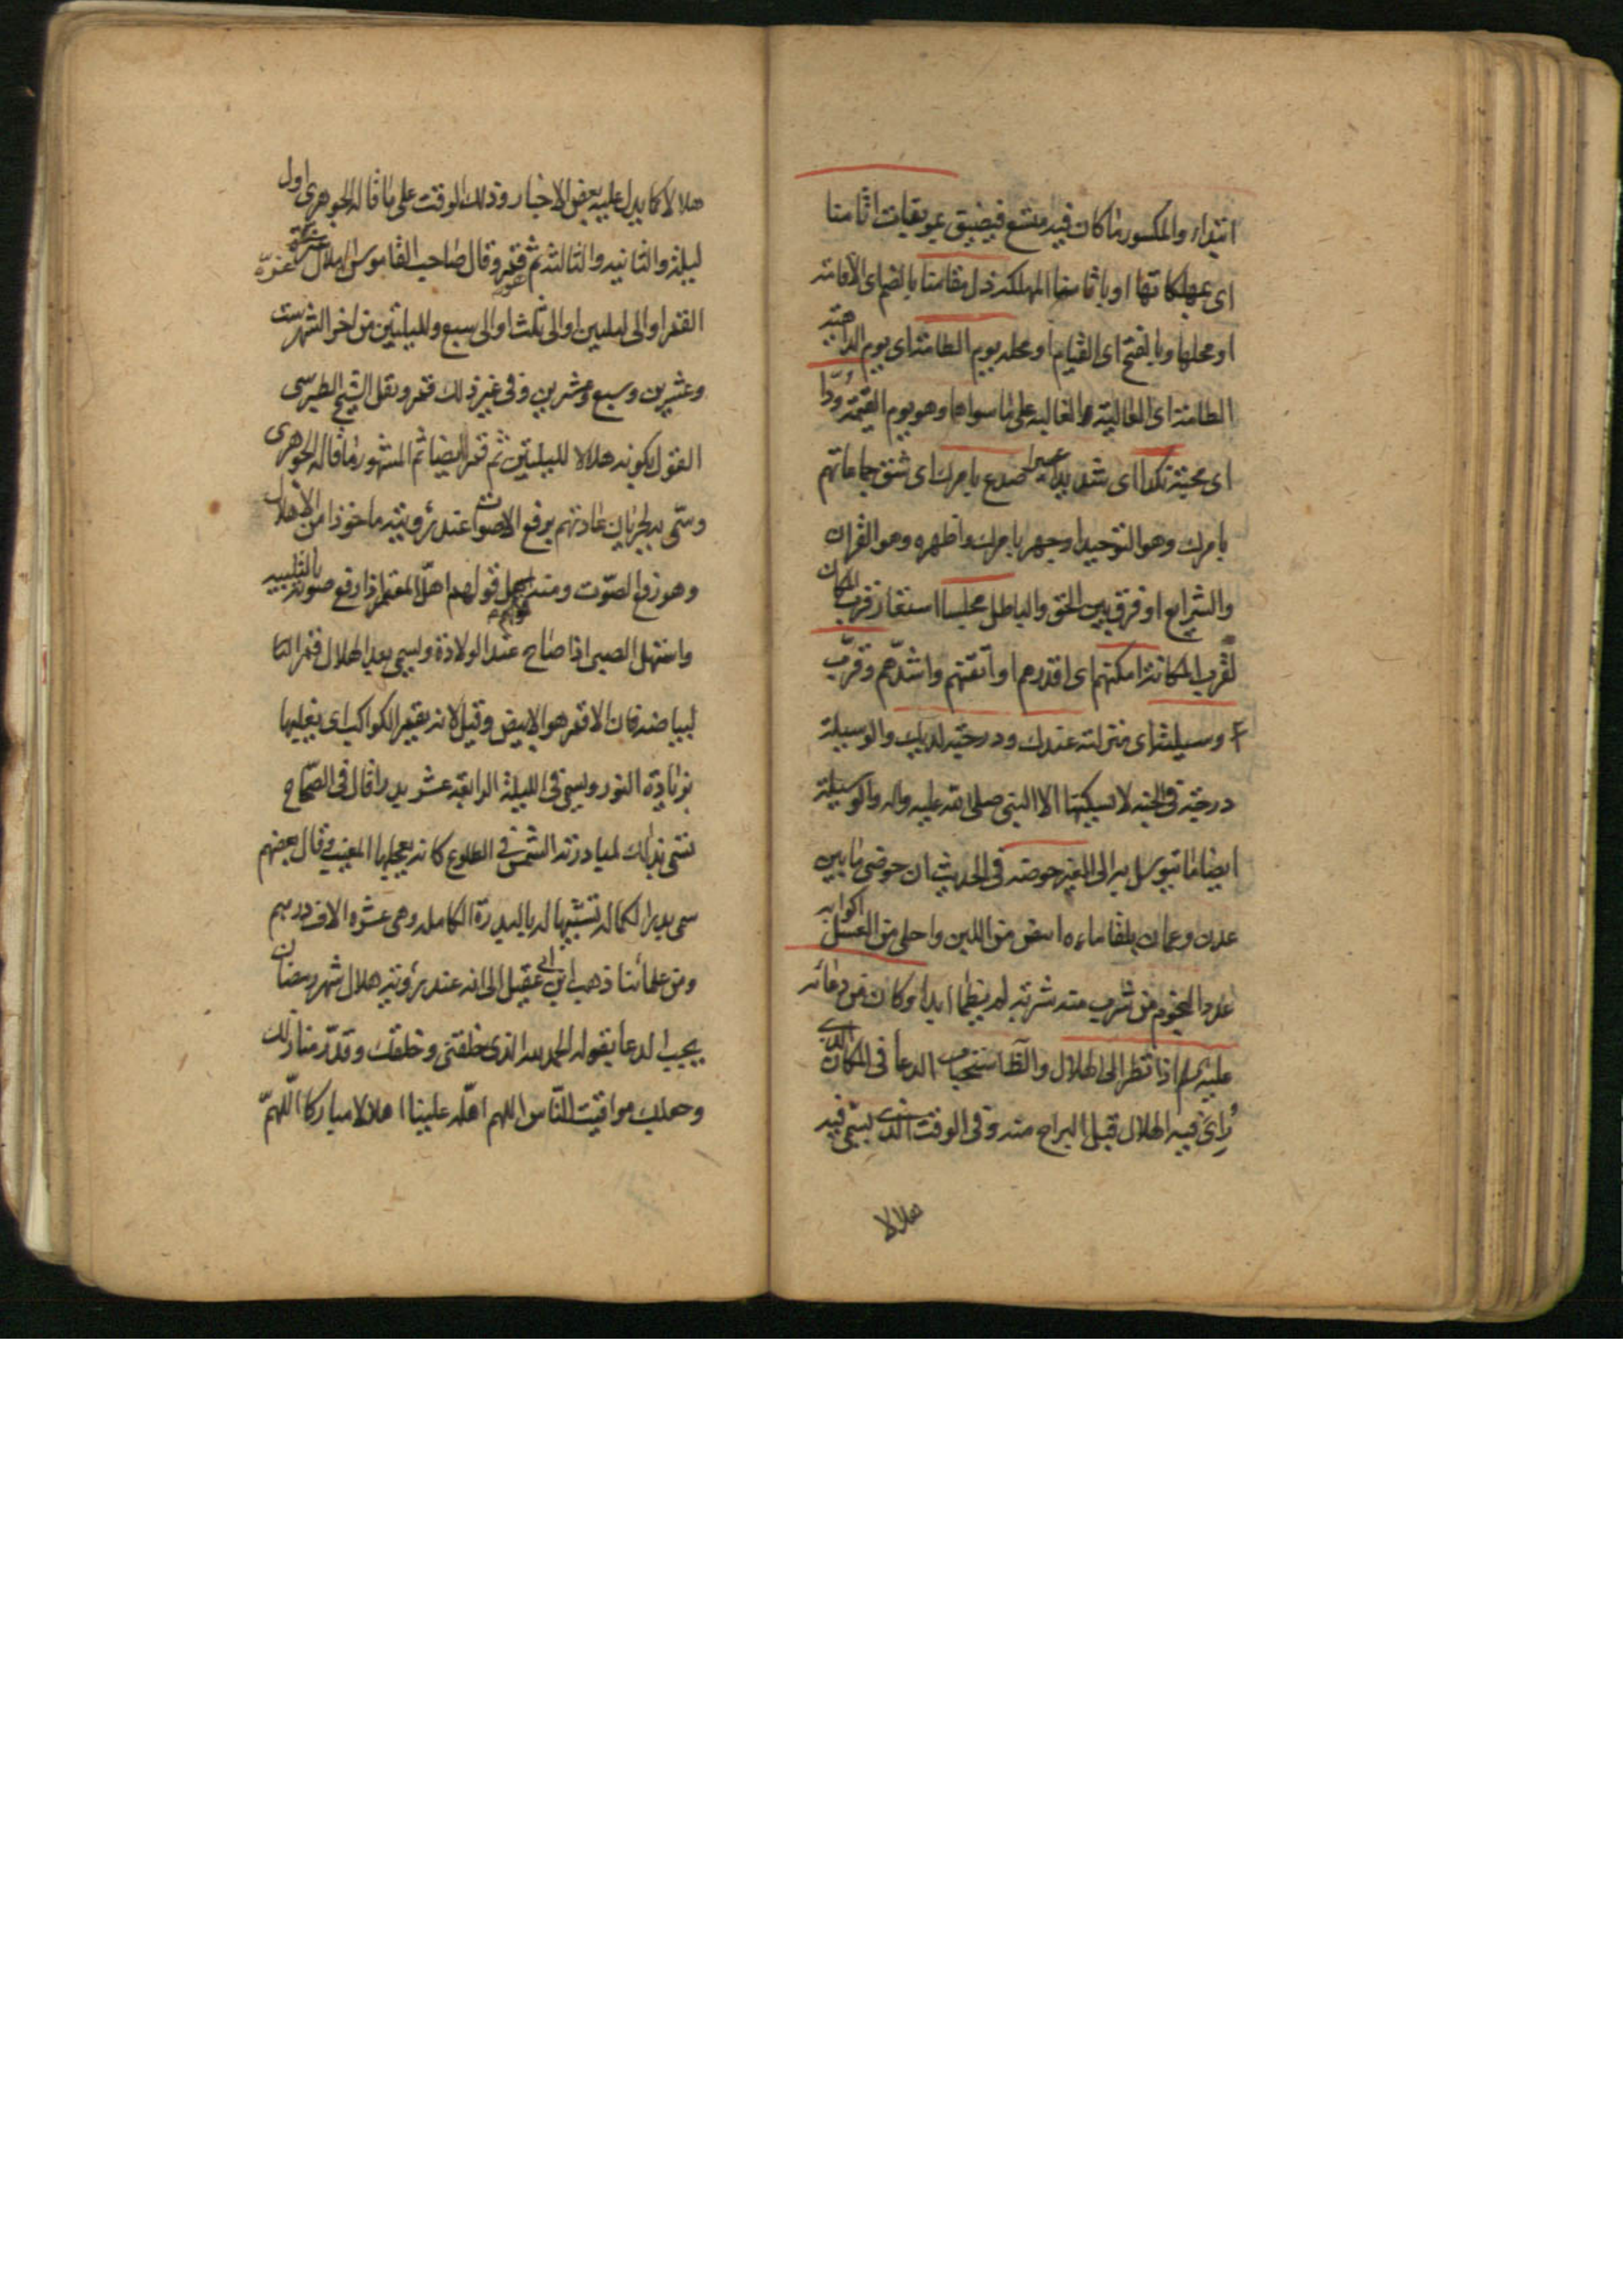 ابتداء والمكسور ما كان فيه متسع فيضيق بموبقات اثامنا
اى بمهلكاتها او باثامنا المهلكة ذل مقامنا بالضم اى الاقامة
او محلها وبالفتح اى القيام او محله يوم الطامة اى يوم الداهية
الطامة اى العالية والغالبة على ما سواها وهو يوم القيمة ودا
اى محبة نكدا اى شديدا عسيرا صدع بامرك اى شق جماعاتهم
بامرك وهو التوحيد او جهر بامرك واظهره وهو القران
والشرايع او فرق بين الحق والباطل مجلسا استعار قرب المكان
لقرب المكانة امكنهم اى اقدرهم او اتقنهم واشدهم وقرب
وسيلته اى منزلته عندك ودرجته لديك والوسيلة
درجة فى الجنة لا يسكنها الا النبى صلى الله عليه واله والوسيلة
ايضا ما يتوسل به الى الغير حوضه فى الحديث ان حوضى ما بين
عدن وعمان بلقا ماءه ابيض من اللبن واحلى من العسل اكوابه
عدد النجوم من شرب منه شربة لم يظما ابدا وكان من دعائه
عليه السلم اذا نظر الى الهلال والظا استحباب الدعا فى المكان الذى
رأى فيه الهلال قبل البراح منه وفى الوقت الذى يسمى فيه
هلالا
هلالا كما يدل عليه بعض الاخبار وذلك الوقت على ما قاله الجوهرى اول
ليلة والثانية والثالثة ثم قمر وقال صاحب القاموس الهلال غرة
القمر او الى ليلتين او الى ثلث او الى سبع ولليلتين من اخر الشهر ست
وعشرين وسبع وعشرين وفى غير ذلك قمر ونقل الشيخ الطبرسى
القول بكونه هلالا لليلتين ثم قمر ايضا ثم المشهور ما قاله الجوهرى
وسمى به لجريان عادتهم برفع الاصوات عند رؤيته ماخوذا من الاهلال
وهو رفع الصوت ومنه قولهم اهل المعتمر اذا رفع صوته بالتلبية
واستهل الصبى اذا صاح عند الولادة ويسمى بعد الهلال قمرا
لبياضه فان الاقمر هو الابيض وقيل لانه يقمر الكواكب اى يغلبها
بزيادة النور ويسمى فى الليلة الرابعة عشر بدرا قال فى الصحاح
سمى بذلك لمبادرته الشمس فى الطلوع كانه يعجلها المغيب وقال بعضهم
سمى بدرا لكماله تشبيها له بالبدرة الكاملة وهى عشرة الاف درهم
ومن علمائنا ذهب ابن ابى عقيل الى انه عند رؤية هلال شهر رمضان
يجب الدعا بقوله الحمد لله الذى خلقنى وخلقك وقدر منازلك
وجعلك مواقيت للناس اللهم اهله علينا اهلالا مباركا اللهم